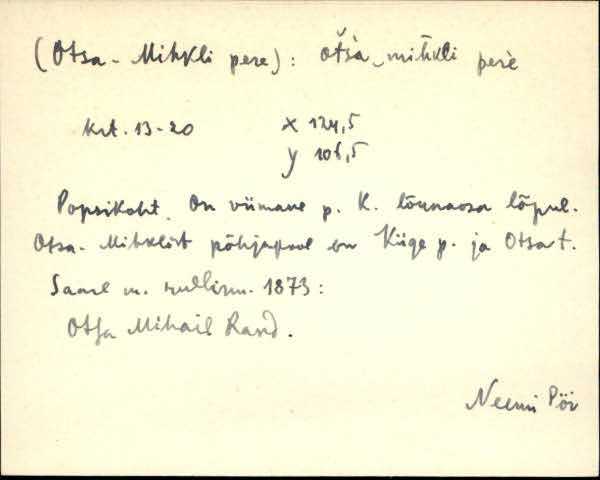 (Otsa-Mihkli pere): ots̆a_mihkli pere
krt. 13-20 x 124,5
y 106,5
Popsikoht. On viimane p. K. lõunaosa lõpul.
Otsa-Mihklist põhjapool on Kiige p. ja Otsa t.
Saarl m. 1873:
Otsa Mihail Rand.
Neemi Pöi